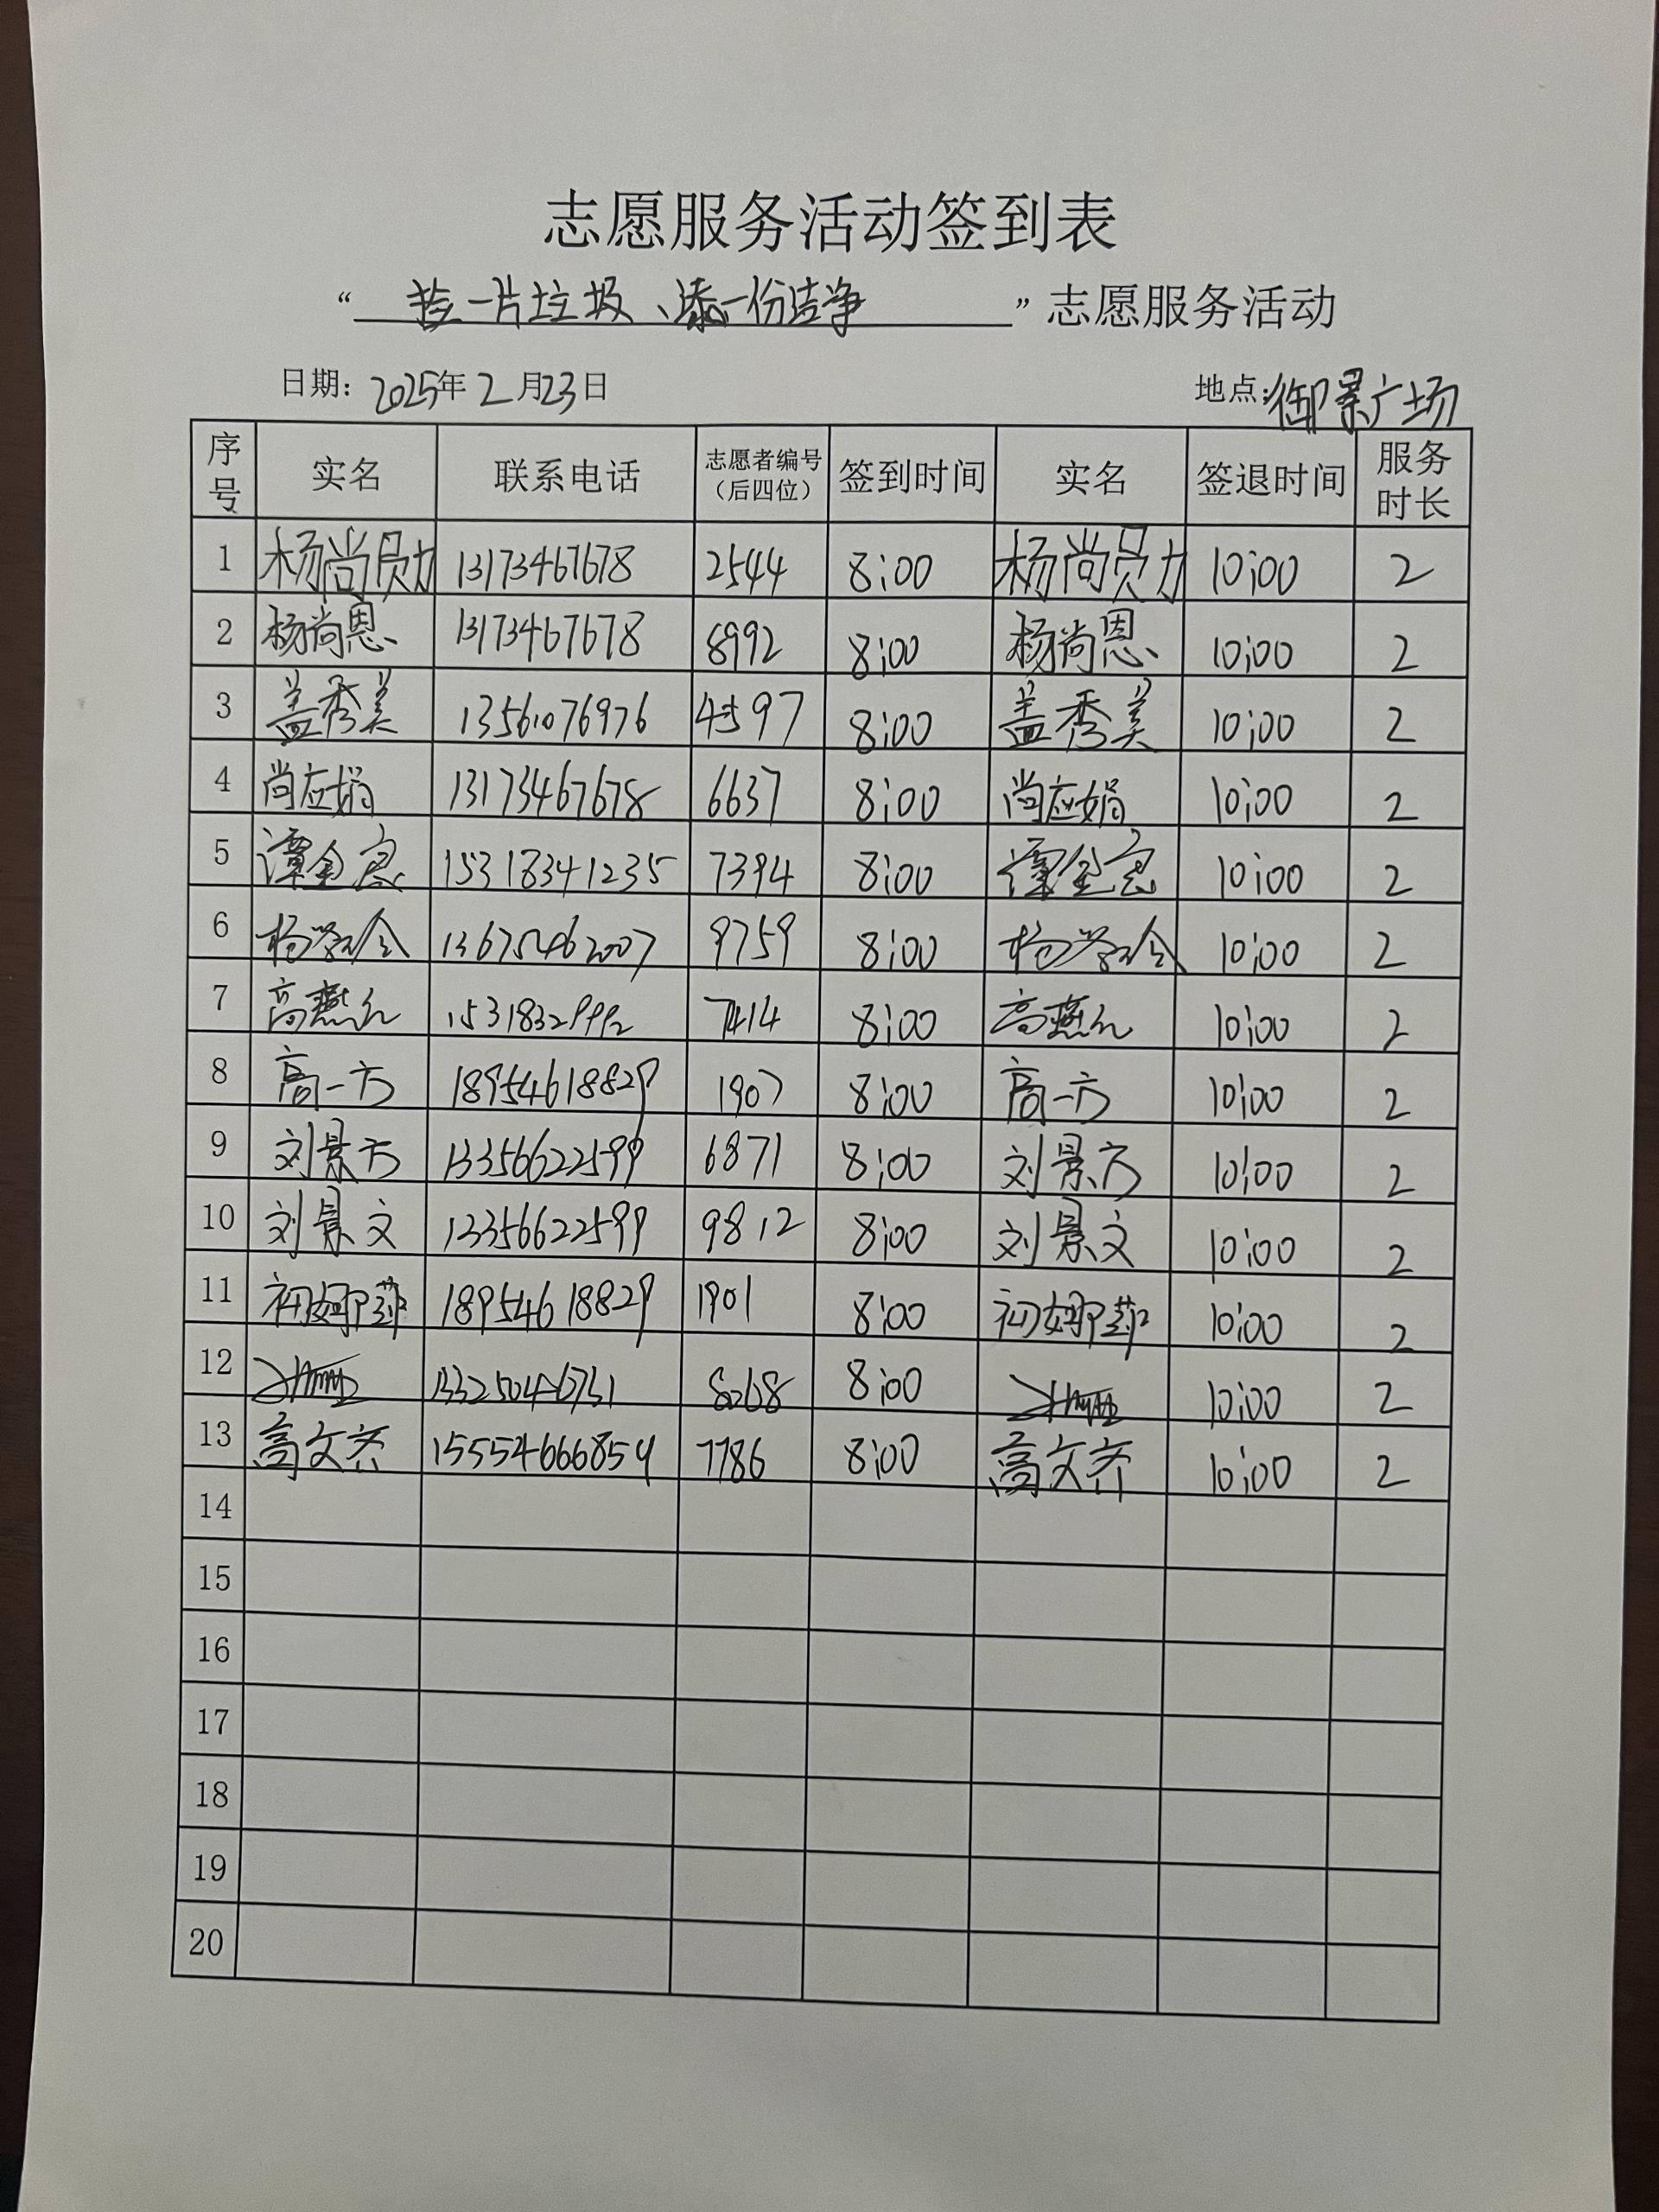 志愿服务活动签到表
“捡一片垃圾、添一份洁净”志愿服务活动
日期：2025年2月23日 地点：御景广场
序号 实名 联系电话 志愿者编号（后四位） 签到时间 实名 签退时间 服务时长
1 杨尚勛 13173467678 2544 8:00 杨尚勛 10:00 2
2 杨尚恩 13173467678 8992 8:00 杨尚恩 10:00 2
3 盖秀美 13561076976 4597 8:00 盖秀美 10:00 2
4 尚应娟 13173467678 6637 8:00 尚应娟 10:00 2
5 谭金良 15318341235 7394 8:00 谭金良 10:00 2
6 13675462007 9759 8:00 10:00 2
7 高燕 7414 8:00 高燕 10:00 2
8 高一方 18954618829 1907 8:00 高一方 10:00 2
9 刘景方 13356622599 6871 8:00 刘景方 10:00 2
10 刘景文 12356622599 9812 8:00 刘景文 10:00 2
11 初娜 18954618829 1901 8:00 初娜 10:00 2
12 8:00 10:00 2
13 高文齐 15554666859 7786 8:00 高文齐 10:00 2
14
15
16
17
18
19
20